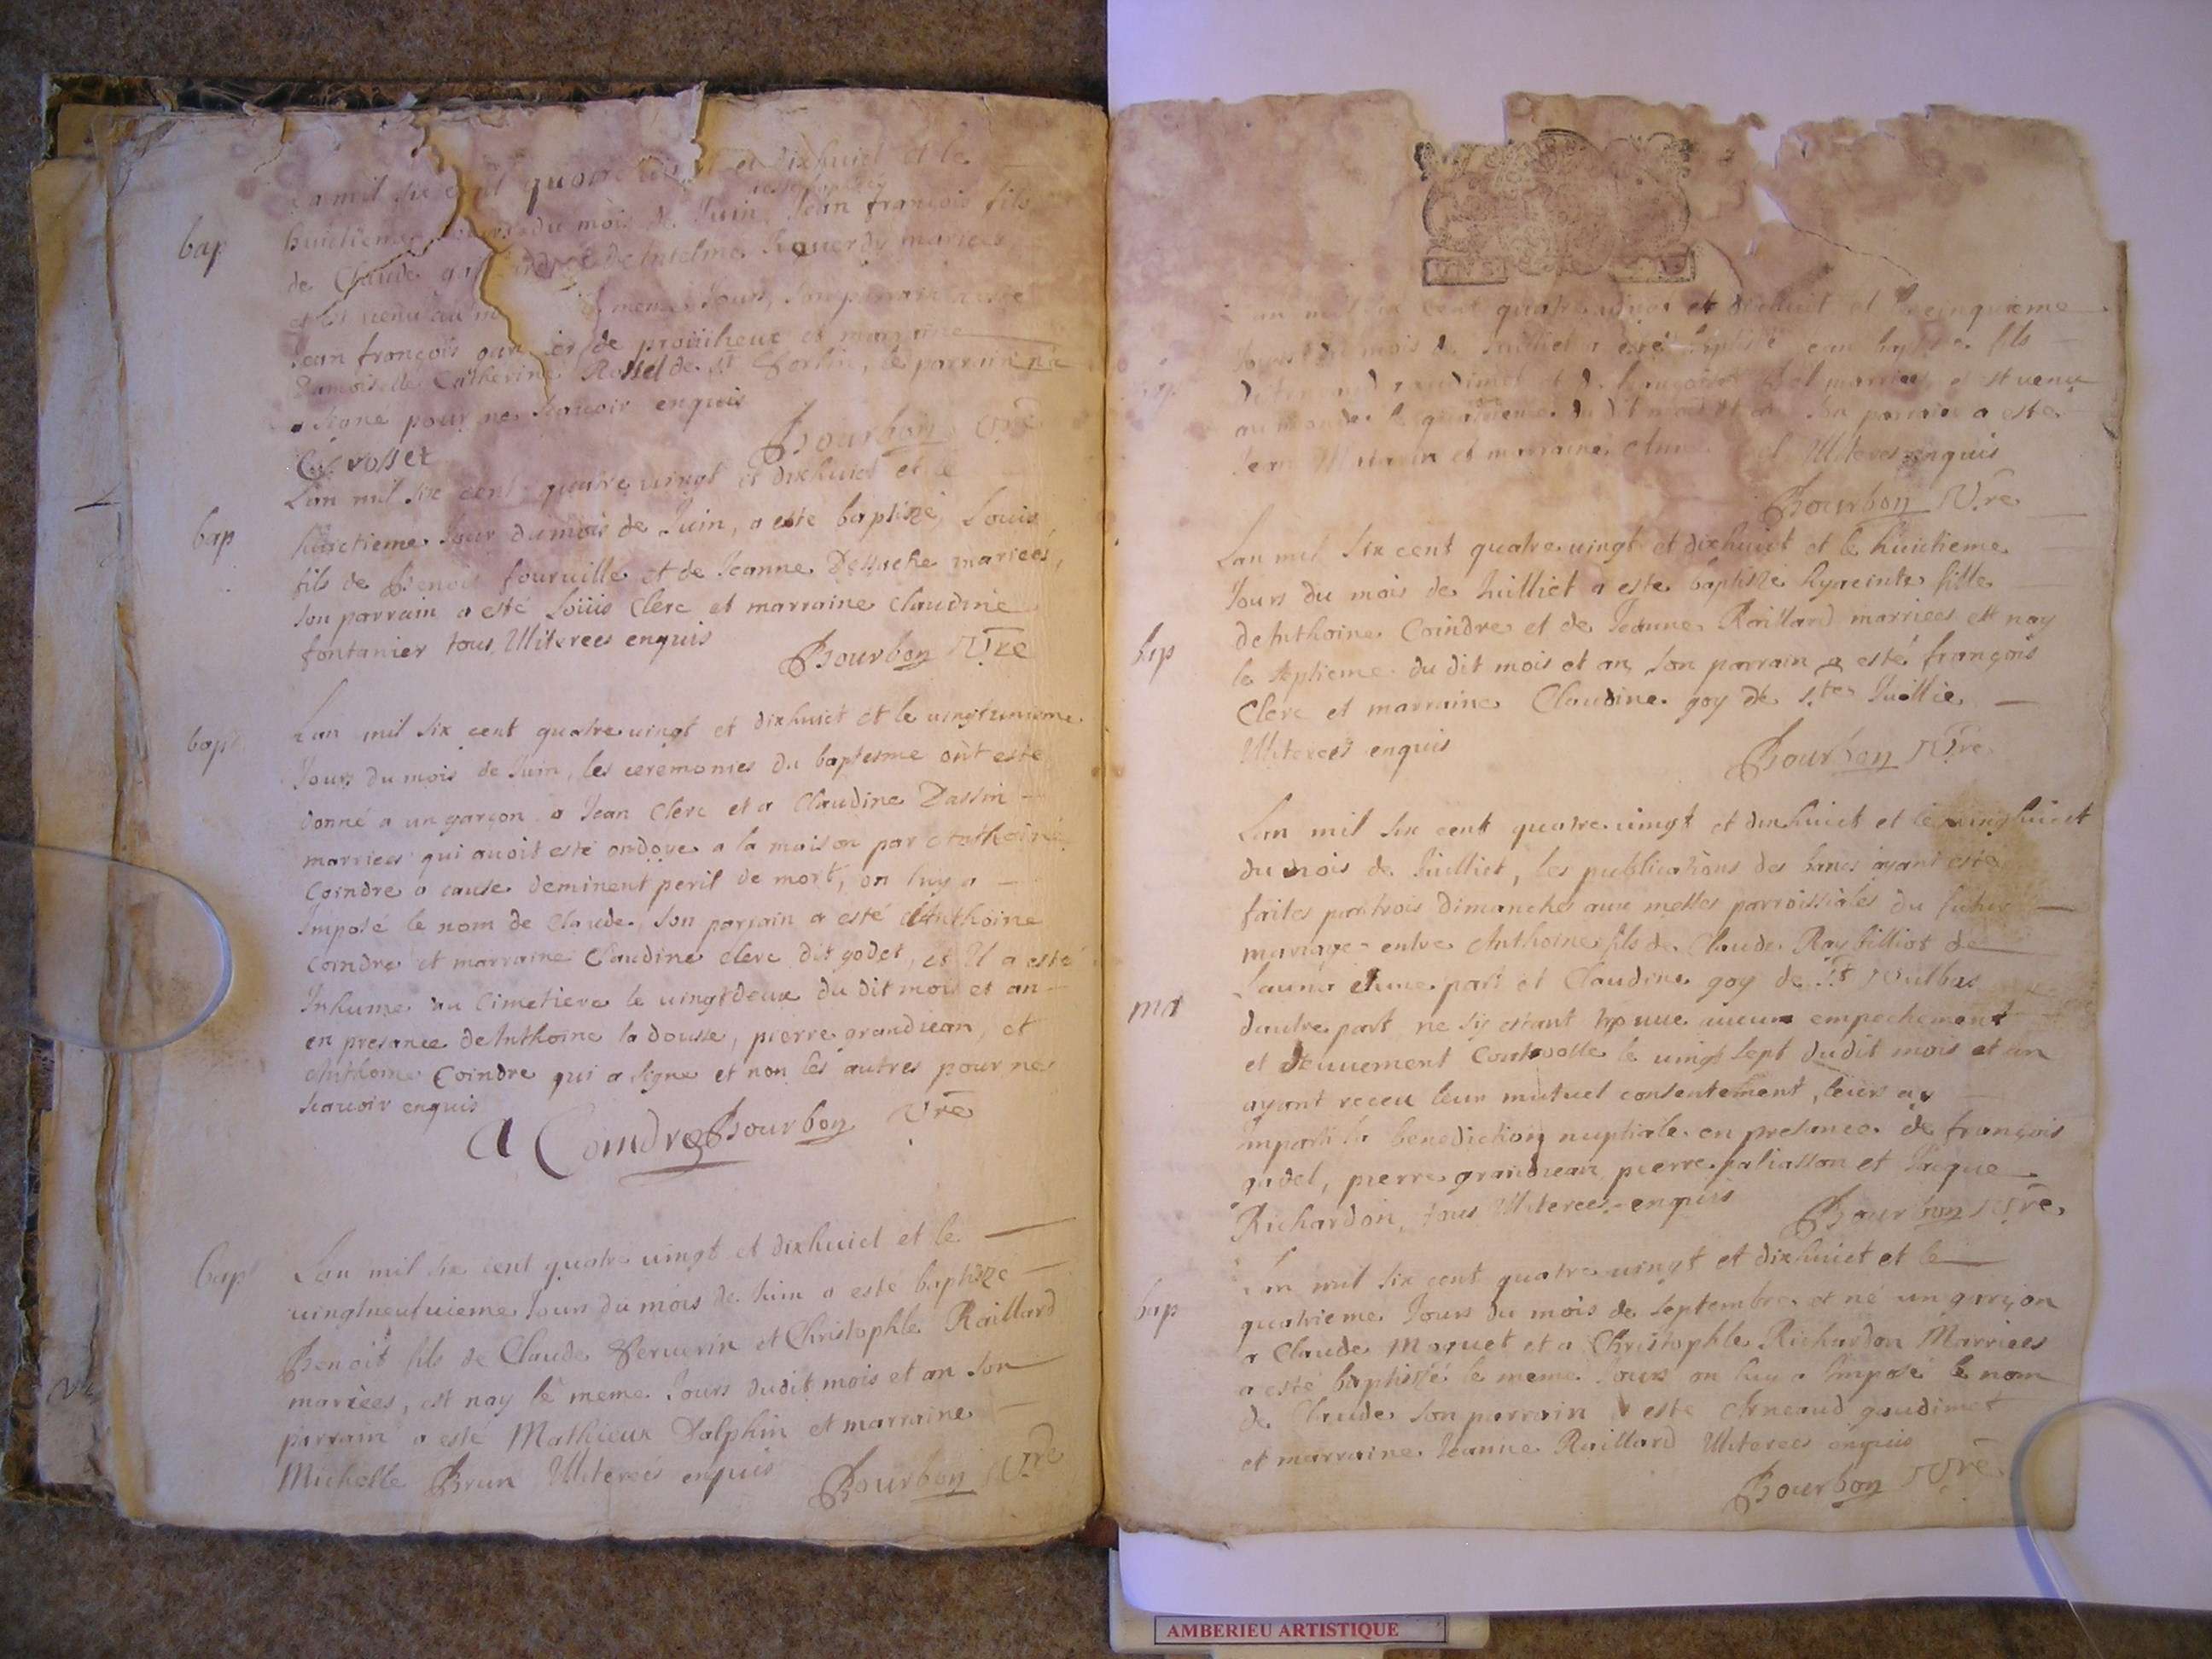 mil six cent quatre et dixhuict et le
bap
huictieme du mois de Juin Jean françois fils
de Claude mariees
venu au meme Jour, son parrain
Jean françois de et marraine
Damoiselle Catherine Rosset de St Sorlin, le parrain n'a
signe pour ne scavoir enquis
Bourbon Vre
C. rosset
Lan mil six cent quatre vingt et dixhuict et le
bap
huictieme Jour du mois de Juin, a este baptisé Louis
fils de Benoit fourville et de Jeanne mariees,
son parrain a esté Loüis Clerc et marraine Claudine
fontanier tous Illiterees enquis
Bourbon Vre
bap
Lan mil six cent quatre vingt et dixhuict et le vingtunieme
Jours du mois de Juin, les ceremonies du baptesme ont este
donné a un garçon a Jean Clerc et a Claudine Dassin
marriees qui avoit esté ondoye a la maison par Anthoine
Coindre a cause deminent peril de mort, on luy a
Imposé le nom de Claude, son parrain a esté Anthoine
Coindre et marraine Claudine Clerc dit godet, et Il a esté
Inhume au Cimetiere le vingtdeux du dit mois et an
en presance dAnthoine la dousse, pierre grandjean, et
Anthoine Coindre qui a signe et non les autres pour ne
scavoir enquis
A Coindre Bourbon Vre
bap
Lan mil six cent quatre vingt et dixhuict et le
vingtneufvieme Jours du mois de Juin a este baptizé
Benoit fils de Claude et Christophle Raillard
mariees, est nay le meme Jours dudit mois et an son
parrain a esté Mathieux Dalphin et marraine
Michelle Brun Illiterees enquis
Bourbon Vre
an mil six cent quatre vingt et dixhuict et le cinquieme
Jours du mois de Juilliet a esté baptisé fils
et de marriees et est venu
au monde le quatrieme du dit mois et an son parrain a este
Jean et marraine Illiterees enquis
Bourbon Vre
Lan mil six cent quatre vingt et dixhuict et le huictieme
Jours du mois de Juilliet a este baptisé hyacinte fille
bap
dAnthoine Coindre et de Jeanne Raillard marriees est nay
le septieme du dit mois et an, son parrain a esté françois
Clerc et marraine Claudine goy de Ste Juillie
Illiterees enquis
Bourbon Vre
Lan mil six cent quatre vingt et dixhuict et le vinghuict
du mois de Juilliet, les publications des bancs ayant este
faites par trois dimanches aux messes parroissiales du futur
mariage entre Anthoine fils de Claude Raybilliot de
d'une part et Claudine goy de St Vulbas
ma
dautre part ne sy estant trouve aucun empechement
et le vingt sept dudit mois et an
ayant receu leur mutuel consentement, leurs ay
imparti la benediction nuptiale en presance de françois
gudet, pierre grandjean pierre paliasson et Jaque
Richardon, tous Illiterees enquis
Bourbon Vre
Lan mil six cent quatre vingt et dixhuict et le
bap
quatrieme Jours du mois de septembre et né un garçon
a Claude Moquet et a Christophle Richardon Marriees
a esté baptisé le meme Jours on luy a Imposé le nom
de Claude son parrain a este gaudimet
et marraine Jeanne Raillard Illiterees enquis
Bourbon Vre
AMBERIEU ARTISTIQUE